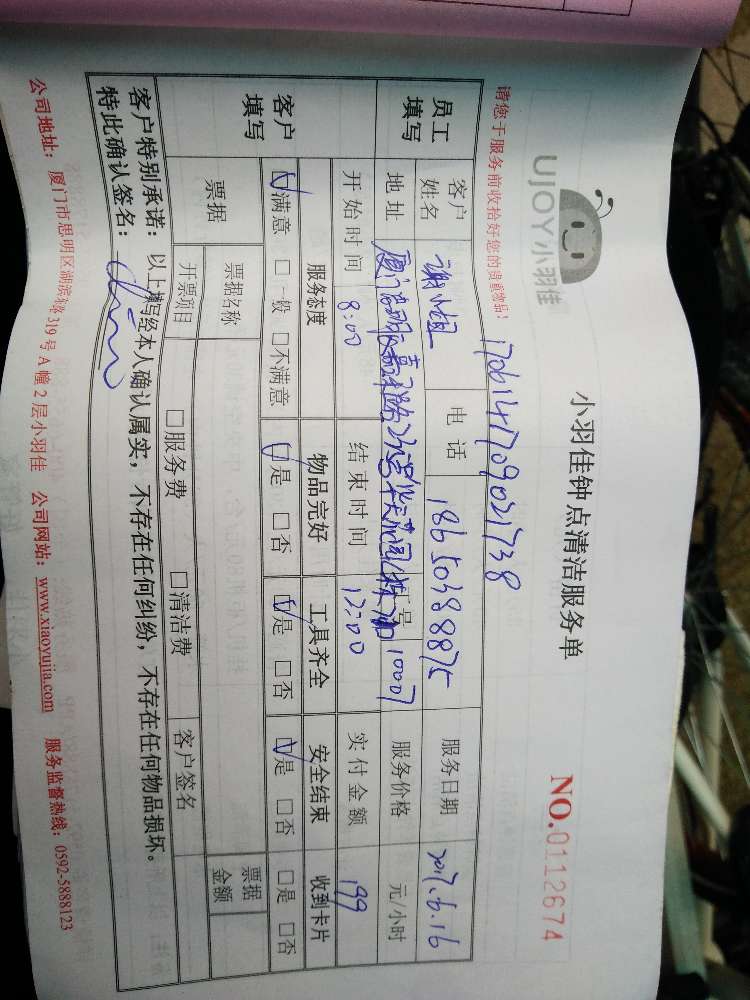 UJOY小羽佳
小羽佳钟点清洁服务单
NO.0112674
请您于服务前收拾好您的贵重物品！
1706147709021738
员工填写
客户姓名 谢小姐 电话 18650388875 服务日期 2017.6.16
地址 厦门 号 10007 服务价格 元/小时
开始时间 8:00 结束时间 12:00 实付金额 199
客户填写
服务态度 物品完好 工具齐全 安全结束 收到卡片
☑满意 □一般 □不满意 ☑是 □否 ☑是 □否 ☑是 □否 □是 □否
票据 票据名称 票据金额
开票项目 □服务费 □清洁费 客户签名
客户特别承诺：以上填写经本人确认属实，不存在任何纠纷，不存在任何物品损坏。
特此确认签名：
公司地址：厦门市思明区湖滨东路319号A幢2层小羽佳 公司网站：www.xiaoyujia.com 服务监督热线：0592-5888123